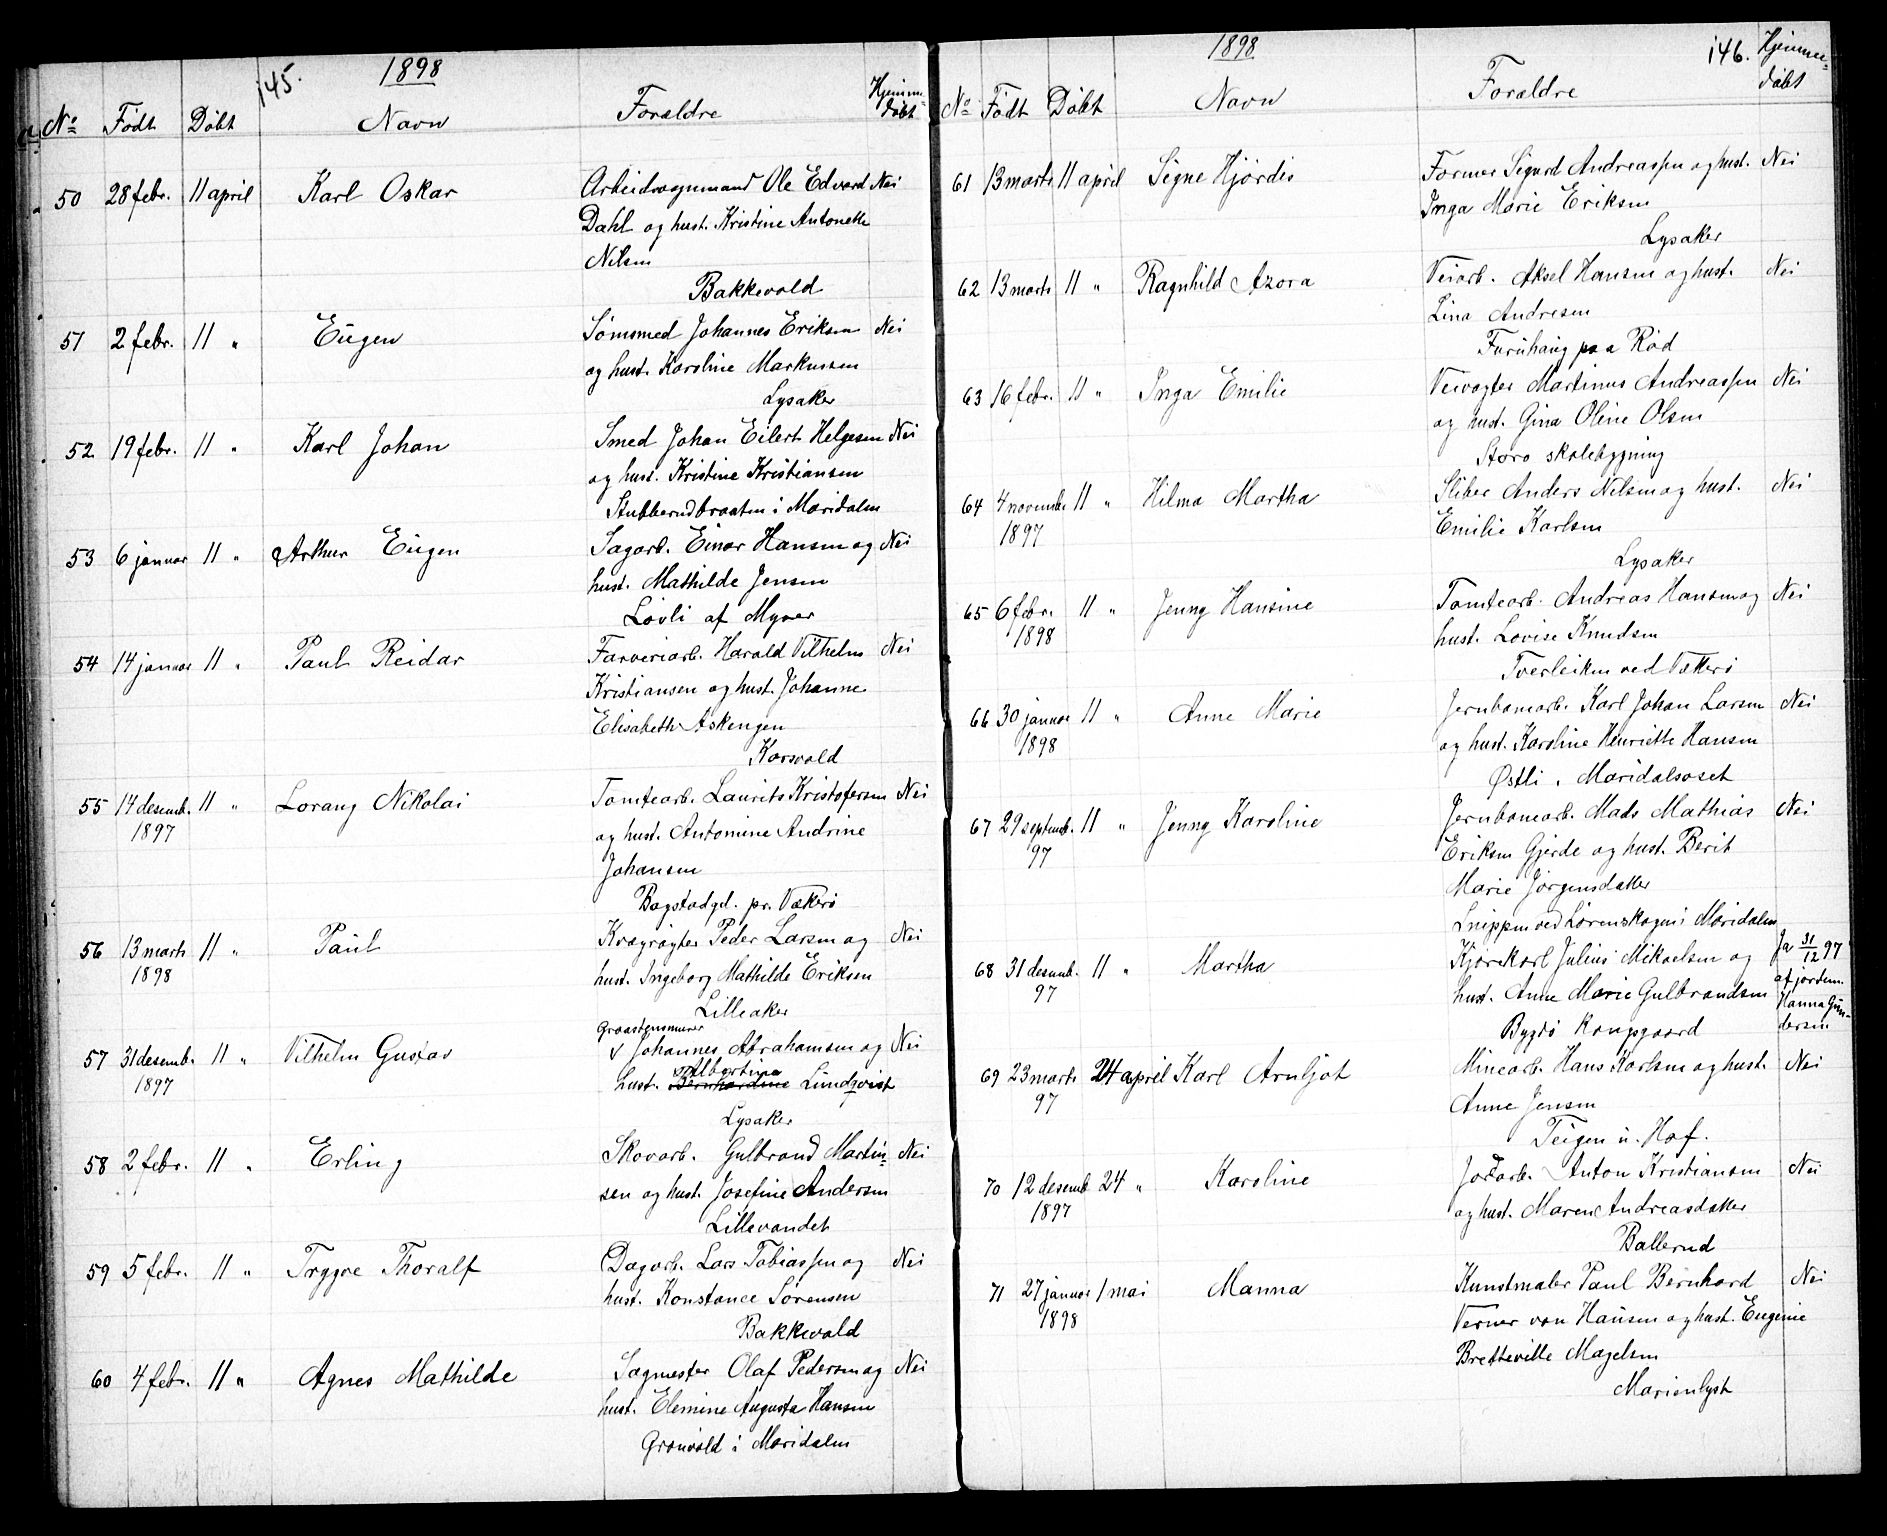 145.
1898
No Født Døbt Navn Forældre Hjemme-
døbt
50 28 febr. 11 april Karl Oskar Arbeidsvognmand Ole Edvard Nei
Dahl og hust. Kristine Antonette
Nilsen
Bakkevold
51 2 febr. 11 " Eugen Sømsmed Johannes Eriksen Nei
og hust. Karoline Markussen
Lysaker
52 19 febr. 11 " Karl Johan Smed Johan Eilert Helgesen Nei
og hust. Kristine Kristiansen
Stubberudbraaten i Maridalen
53 6 januar 11 " Arthur Eugen Sagarb. Einar Hansen og Nei
hust. Mathilde Jensen
Løvli af Myrer
54 14 januar 11 " Paul Reidar Farveriarb. Harald Vilhelm Nei
Kristiansen og hust. Johanne
Elisabeth Askengen
Korsvold
55 14 desemb. 11 " Lorang Nikolai Tomtearb. Laurits Kristofersen Nei
1897 og hust. Antomine Andrine
Johansen
Bogstadgd. pr. Vækerø
56 13 marts 11 " Paul Kvægrøgter Peder Larsen og Nei
1898 hust. Ingeborg Mathilde Eriksen
Lilleaker
Graastensmurer
57 31 desemb. 11 " Vilhelm Gustav v Johannes Abrahamsen og Nei
Albertine
1897 hust. Bernhardine Lundqvist
Lysaker
58 2 febr. 11 " Erling Skovarb. Gulbrand Martin- Nei
sen og hust. Josefine Andersen
Lillevandet
59 5 febr. 11 " Trygve Thoralf Dagarb. Lars Tobiassen og Nei
hust. Konstance Sørensen
Bakkevold
60 4 febr. 11 " Agnes Mathilde Sagmester Olaf Pedersen og Nei
hust. Elemine Augusta Hansen
Grønvold i Maridalen
1898
146.
No Født Døbt Navn Forældre Hjemme-
døbt
61 13 marts 11 april Signe Hjördis Former Sigurd Andreassen og hust. Nei
Inga Marie Eriksen
Lysaker
62 13 marts 11 " Ragnhild Azora Veiarb. Aksel Hansen og hust. Nei
Lina Andresen
Furuhaug paa Rød
63 16 febr. 11 " Inga Emilie Veivogter Martinus Andreassen Nei
og hust. Gina Oline Olsen
Storo skolebygning
64 4 novembr 11 " Hilma Martha Sliber Anders Nilsen og hust. Nei
1897 Emilie Karlsen
Lysaker
65 6 febr. 11 " Jenny Hansine Tomtearb. Andreas Hansen og Nei
1898 hust. Lovise Knudsen
Tverleiken ved Vækerø
66 30 januar 11 " Anne Marie Jernbanearb. Karl Johan Larsen Nei
1898 og hust. Karoline Henriette Hansen
Østli, Maridalsoset
67 29 septemb. 11 " Jenny Karoline Jernbanearb. Mads Mathias Nei
97 Eriksen Gjerde og hust. Berit
Marie Jørgensdatter
Snippen ved Lørenskogen i Maridalen
68 31 desemb. 11 " Martha Kjørekarl Julius Mikaelsen og Ja 31/12 97
97 hust. Anne Marie Gulbrandsen af jordem.
Bygdø Kongsgaard Hanna Gun-
dersen
69 23 marts 24 april Karl Arnljot Minearb. Hans Karlsen og hust. Nei
97 Anne Jensen
Teigen u. Hof.
70 12 desemb 24 " Karoline Jordarb. Anton Kristiansen Nei
1897 og hust. Maren Andreasdatter
Ballerud
71 27 januar 1 mai Manna Kunstmaler Paul Bernhard Nei
1898 Verner von Hausen og hust. Eugenie
Bretteville Magelsen
Marienlyst